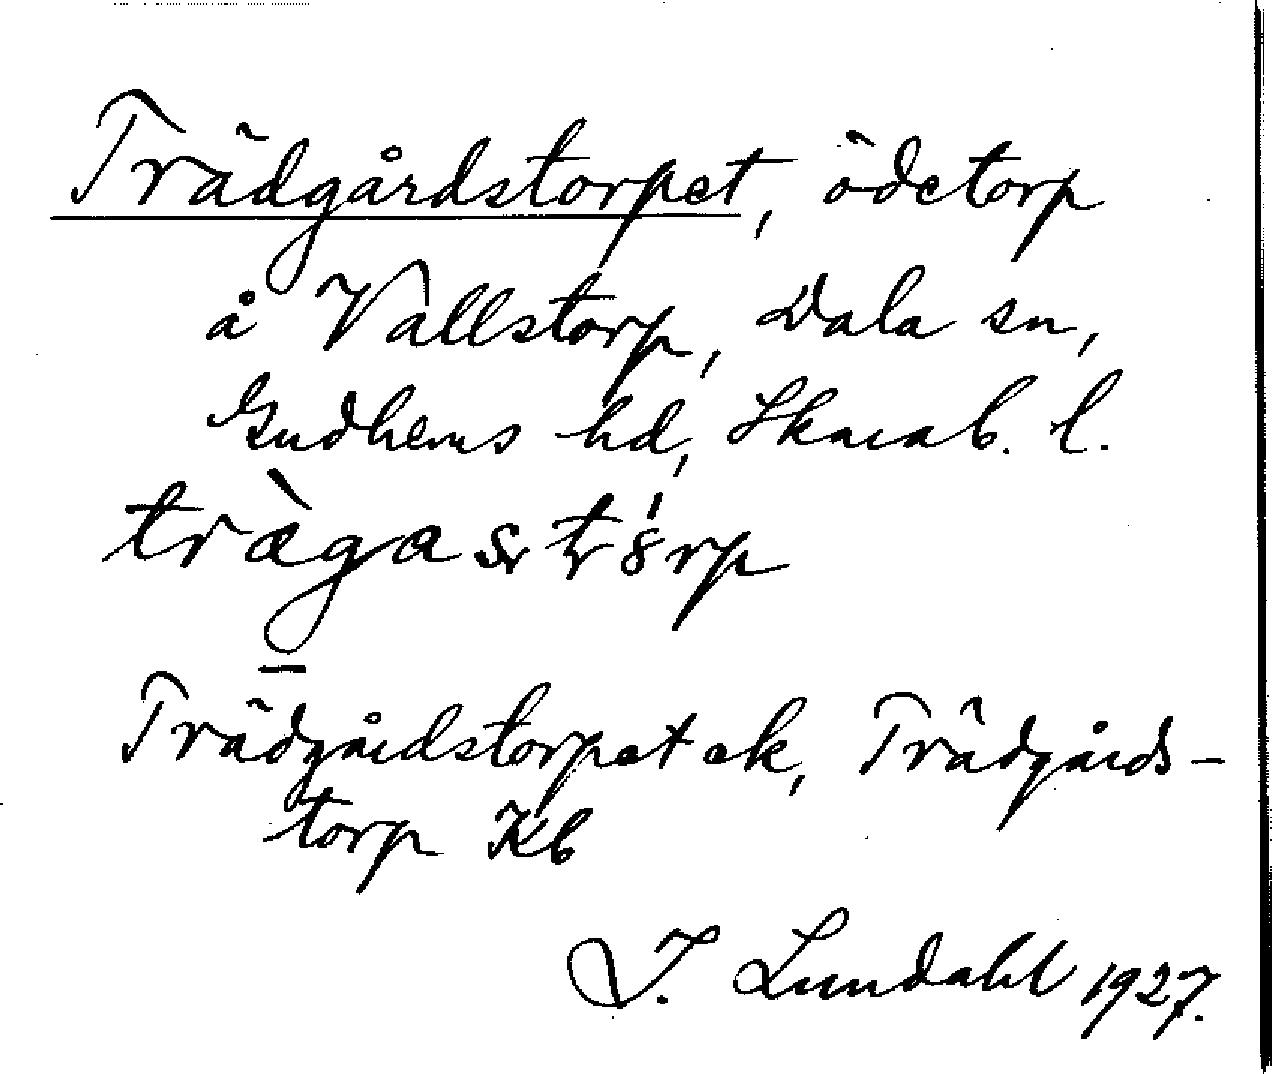 Trädgårdstorpet, ödetorp
å Vallstorp, Dala sn,
Gudhems hd, Skarab. l.
trægastörp
Trädgårdstorpet ek, Trädgårds-
torp Kb
I. Lundahl 1927.